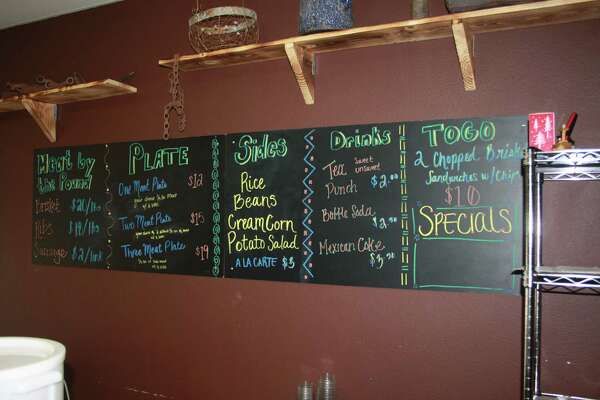 Meat by
the Pound
Brisket $20/lb
Ribs $19/lb
Sausage $2/link
PLATE
One Meat Plate $12
Two Meat Plate $15
Three Meat Plate $19
Sides
Rice
Beans
Cream Corn
Potato Salad
A LA CARTE $3
Drinks
Tea Sweet
unsweet
Punch $2.00
Bottle Soda
$2.50
Mexican Coke
TOGO
2 Chopped Brisket
Sandwiches w/ Chips
$10
SPECIALS